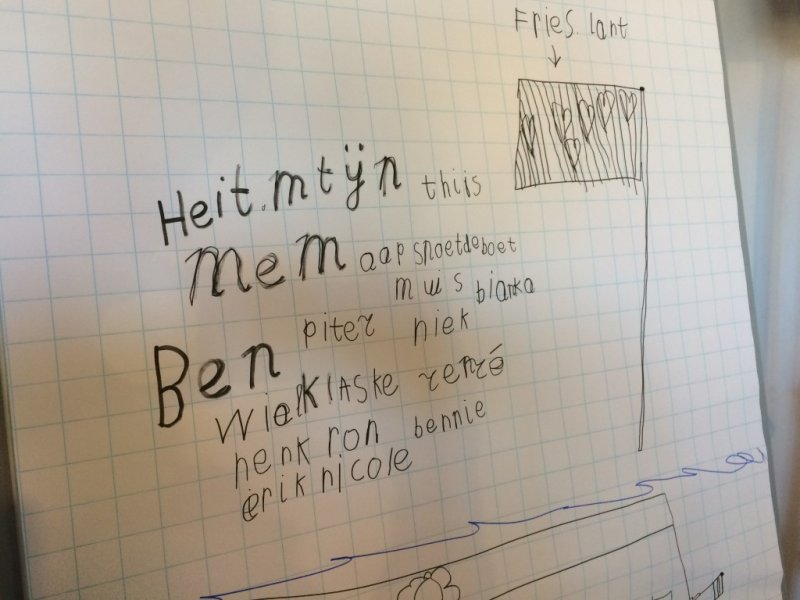 Fries.lant
Heit.mtÿn thijs
Mem aap snoetdeboet
muis bianka
Ben piter niek
Wielklaske renré
henk ron bennie
erik nicole